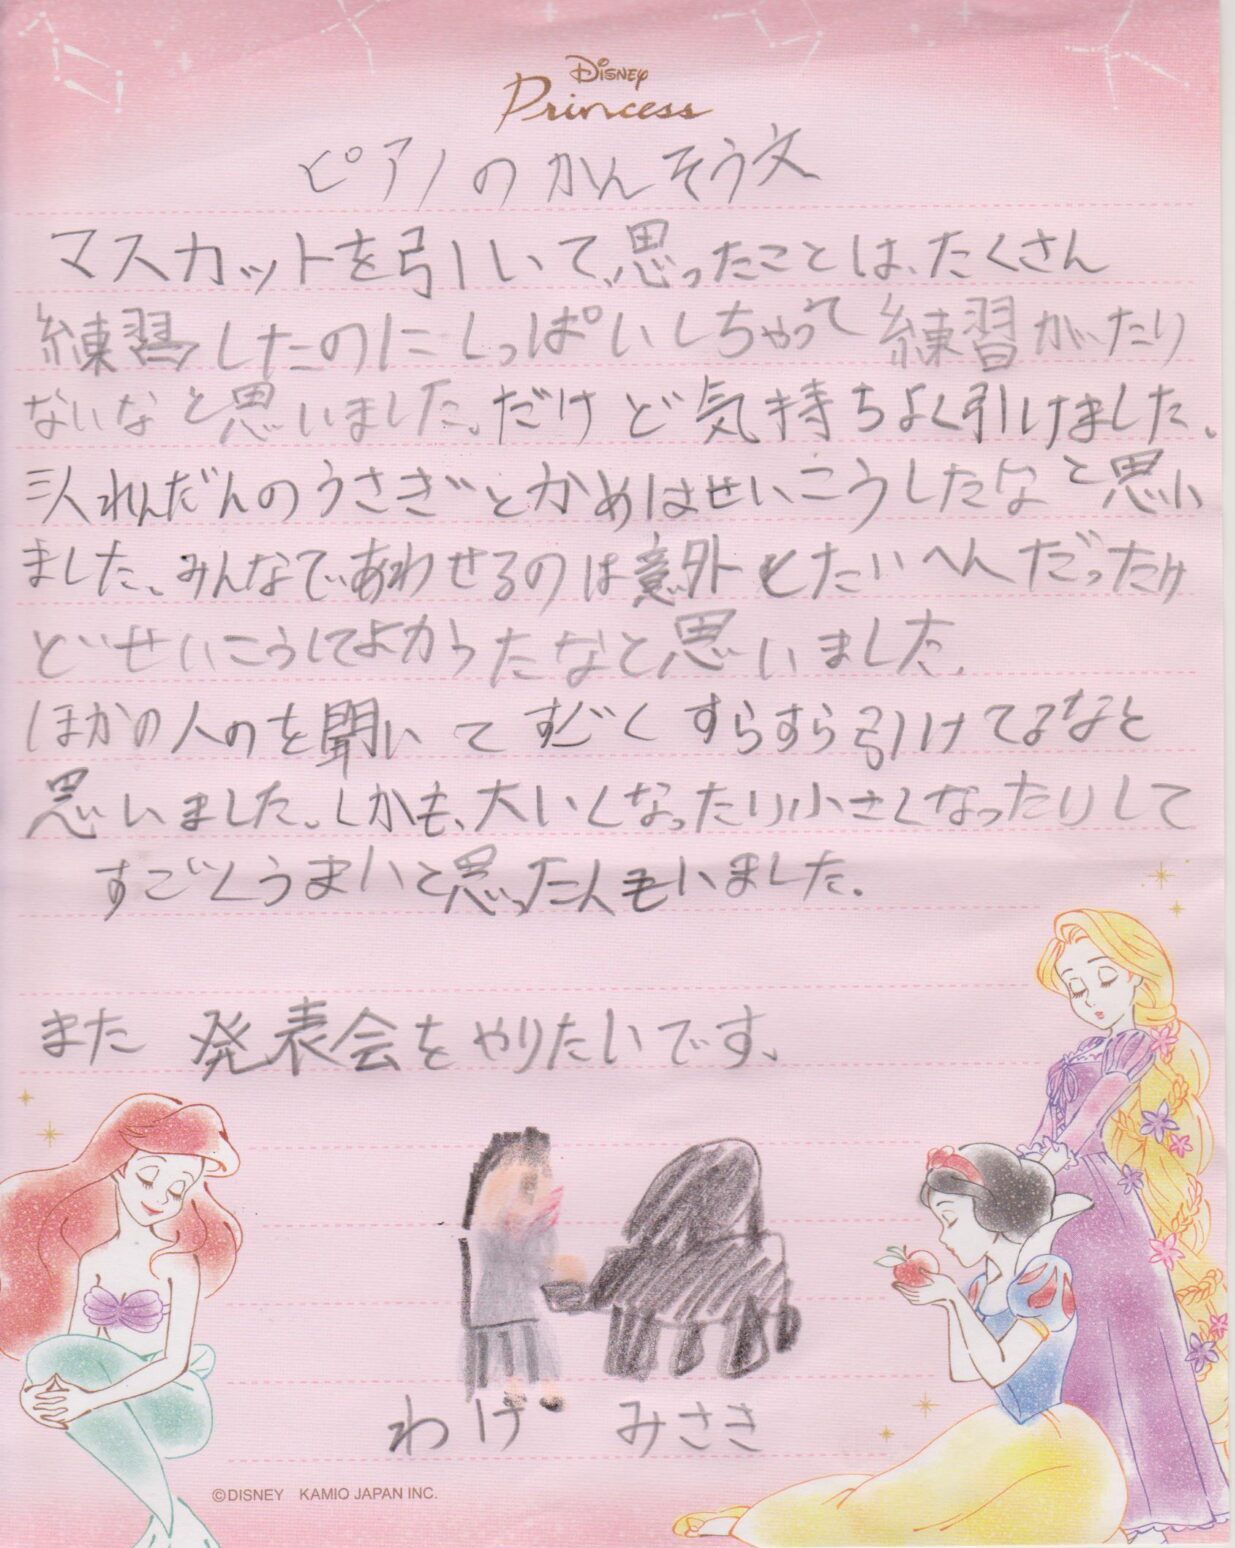 Disney
Princess
ピアノのかんそう文
マスカットを引いて、思ったことは、たくさん
練習したのにしっぱいしちゃって練習がたり
ないなと思いました。だけど気持ちよく引けました。
三人れんだんのうさぎとかめはせいこうしたなと思い
ました。みんなであわせるのは意外とたいへんだったけ
どせいこうしてよかったなと思いました。
ほかの人のを聞いてすごくすらすら引けてるなと
思いました。しかも、大いくなったり小さくなったりして
すごくうまいと思った人もいました。
また 発表会をやりたいです。
わげ みさき
©DISNEY KAMIO JAPAN INC.